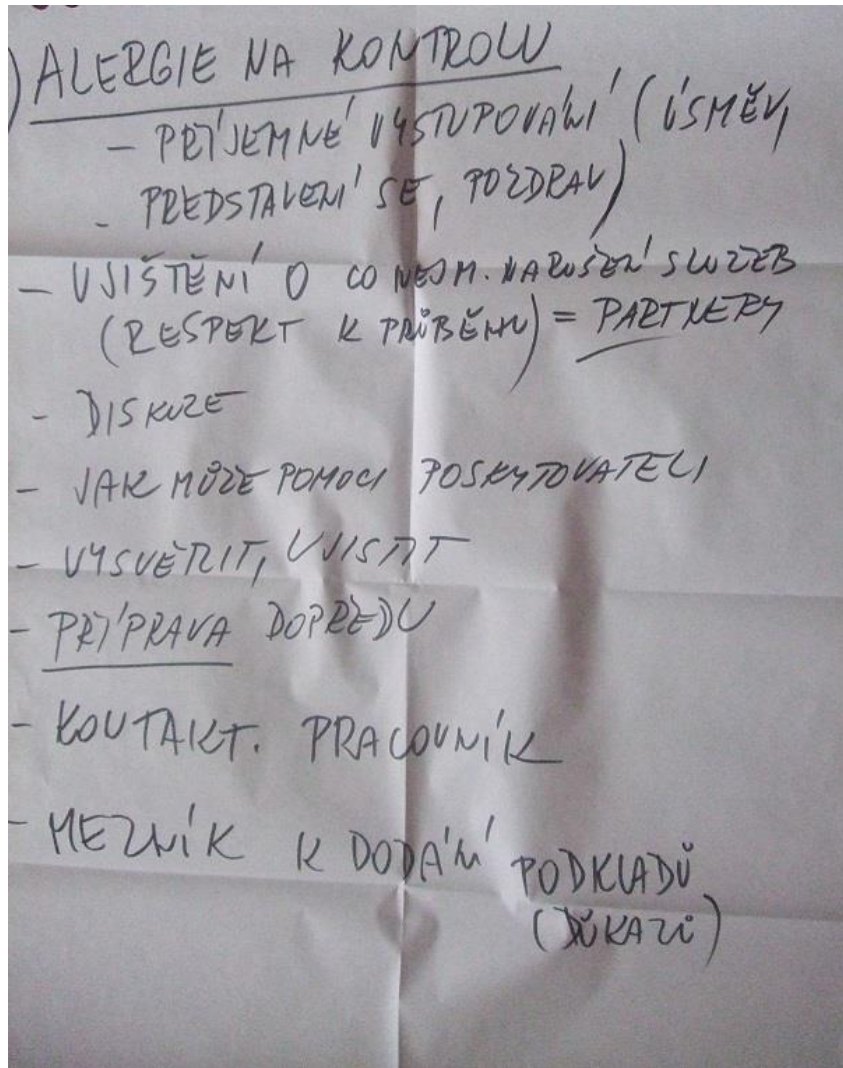 ) ALERGIE NA KONTROLU
- PŘÍJEMNÉ VYSTUPOVÁNÍ (ÚSMĚV,
- PŘEDSTAVENÍ SE, POZDRAV)
- UJIŠTĚNÍ O CO NEJM. NARUŠENÍ SLUŽEB
(RESPEKT K PRŮBĚHU) = PARTNERY
- DISKUZE
- JAK MŮŽE POMOCI POSKYTOVATELI
- VYSVĚTLIT, UJISTIT
- PŘÍPRAVA DOPŘEDU
- KONTAKT. PRACOVNÍK
- MEZNÍK K DODÁNÍ PODKLADŮ
(DŮKAZŮ)